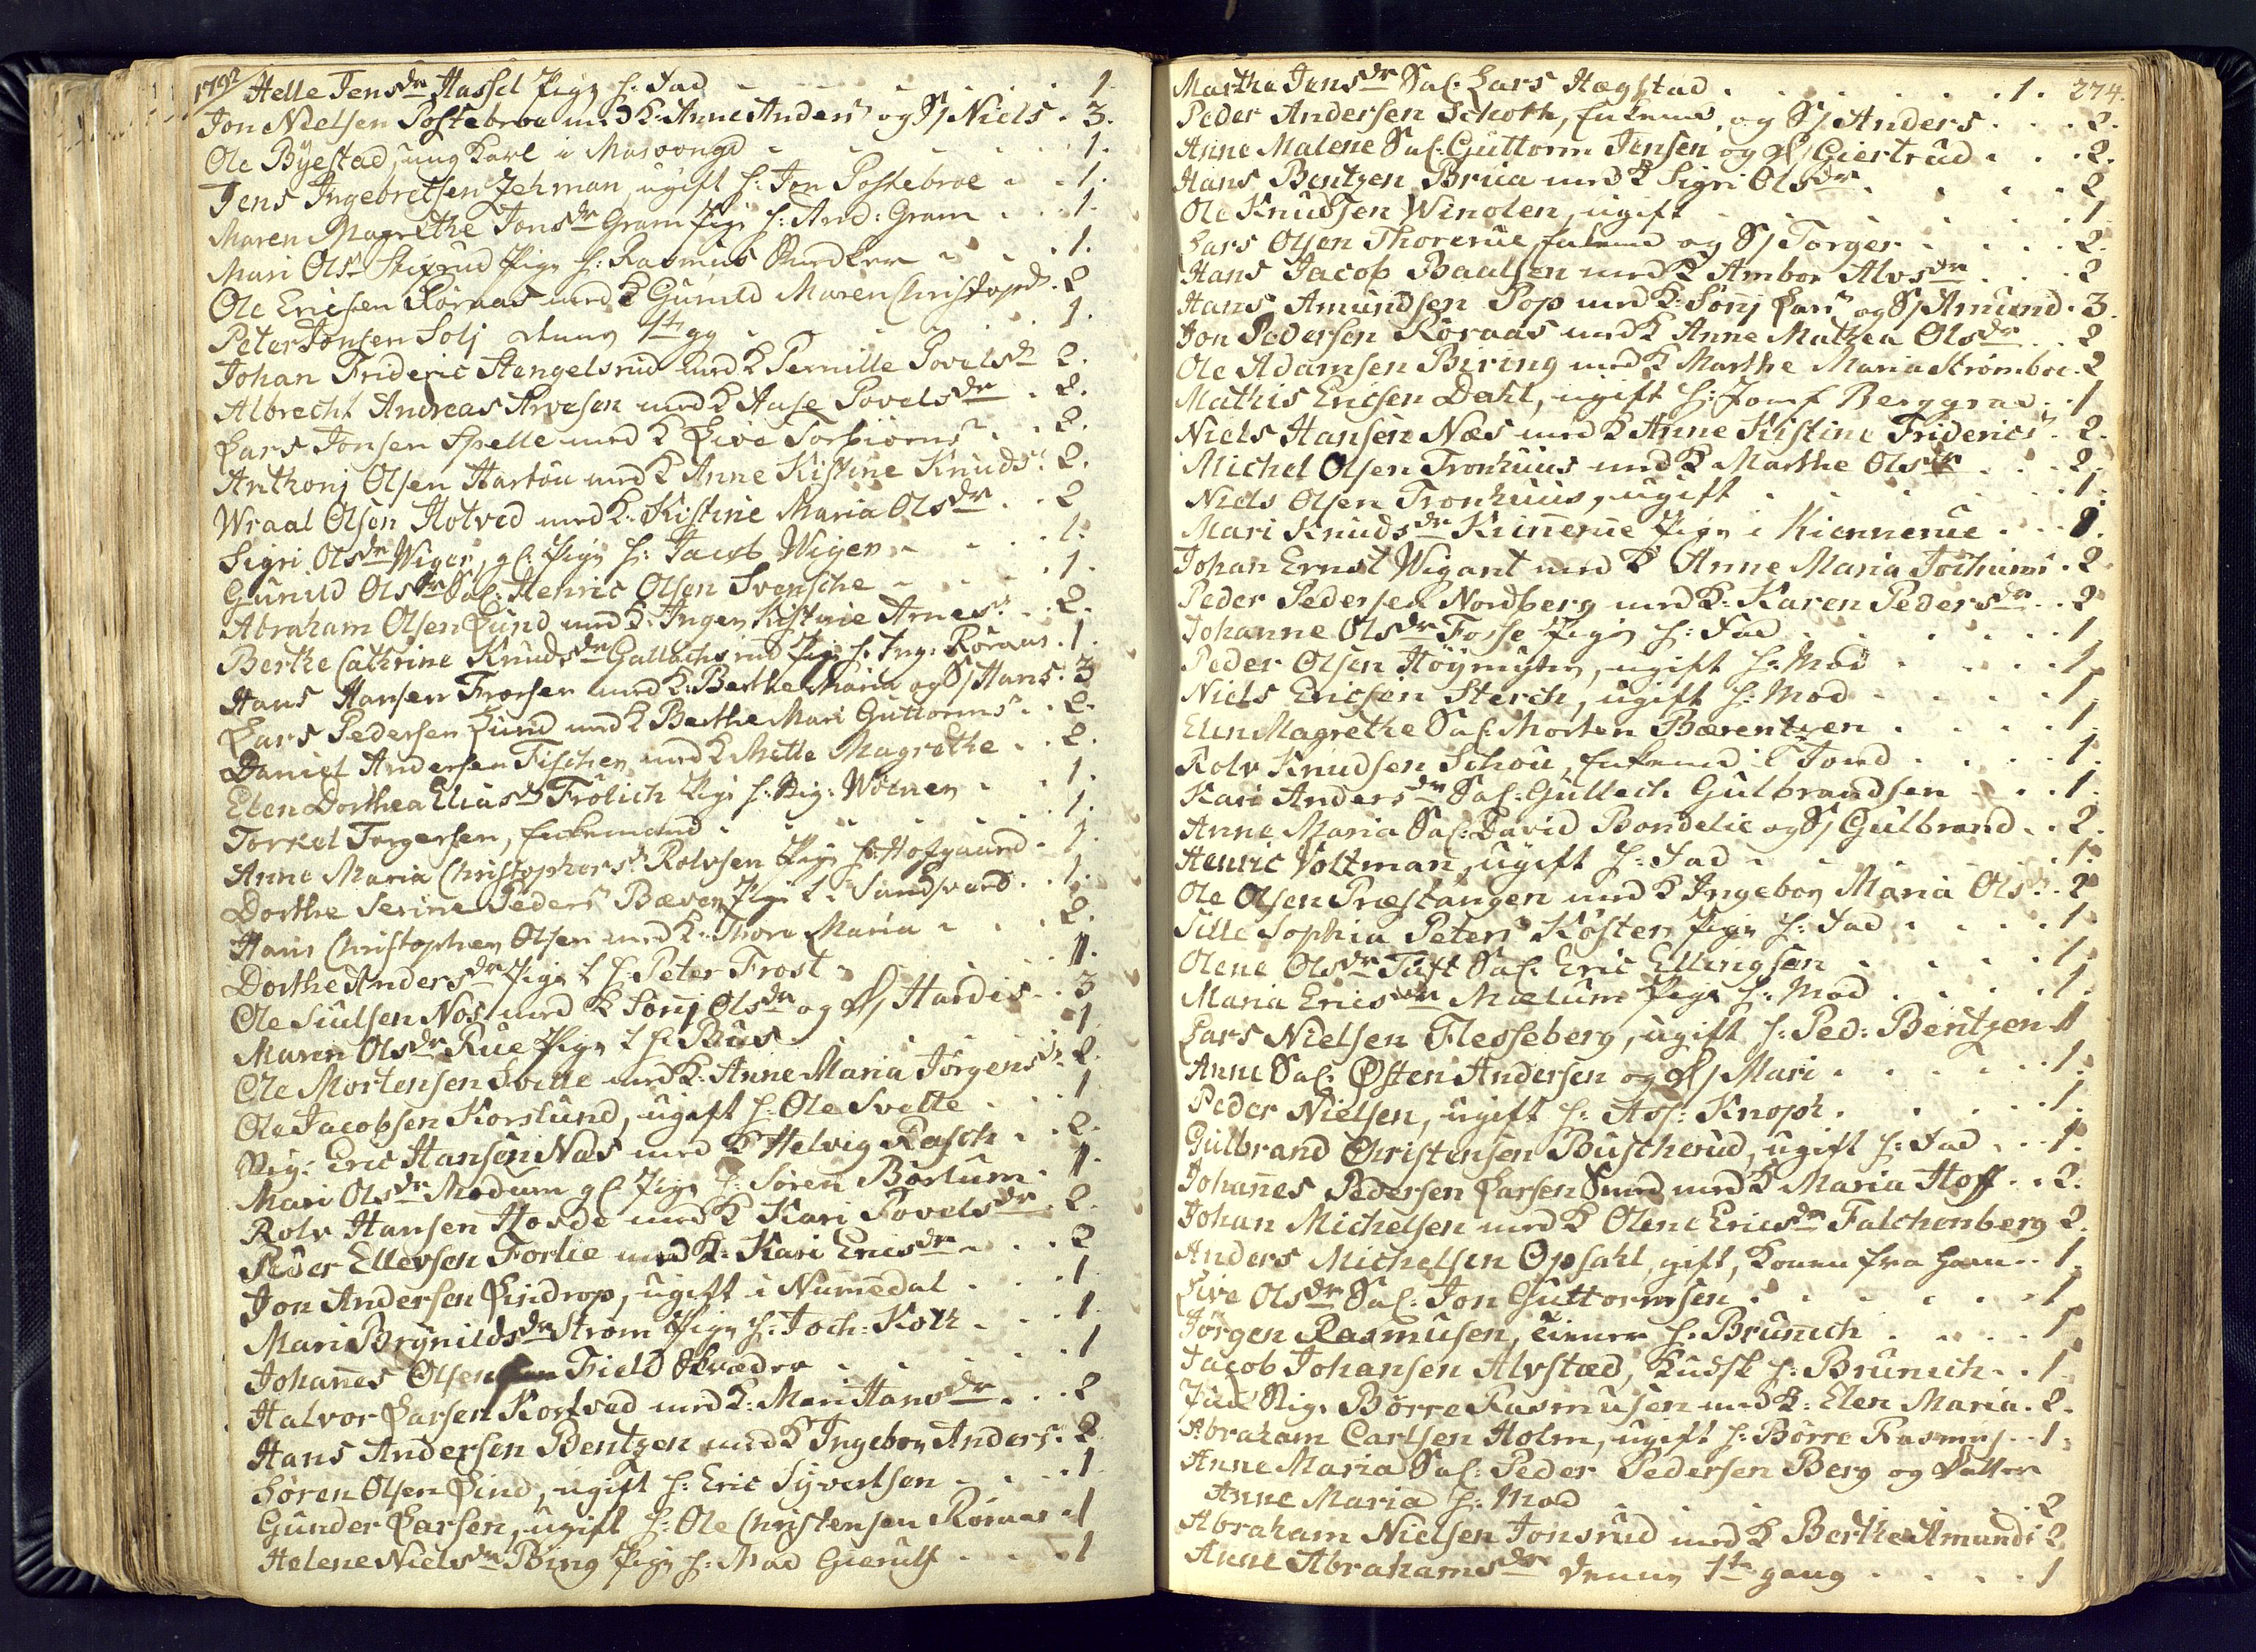 1792
Helle Jensdr Hassel Pige h: Fad 1.
Jon Nielsen Postebroe med K. Anne Anders og S/ Niels. 3.
Ole Byestad, ung Karl 1.
Jens Ingebretsen Zehman, ugift h: Jon Postebroe 1.
Maren Magrethe Jonsdr Gram Pige h: And: Gram 1.
Mari Ols Pige h. Rasmus 1.
Ole Ericsen Röraas med K Gunild Maren Christophdr. 2
Peter Jonsen Solj denne 1te gg 1.
Johan Frideric Stengelsrud med K Pernille Povelsdr 2.
Albrecht Andreas Arvesen med K Aase Povelsdr 2.
Lars Jonsen Spelle med K Live Torbiörns 2.
Anthonj Olsen Hartou med K Anne Kistine Knuds. 2.
Wraal Olsen Hotved med K. Kistine Maria Olsdr 2
Sigri Olsdr Wiger, gl. Pige h: Jacob Wigen 1.
Gunild Olsdr Sal. Henric Olsen Svensche 1.
Abraham Olsen Lund med K. Inger Kistine Arnes 2.
Berthe Cathrine Knudsdr Gallachsrud Pige h. Ing. Röraas 1.
Hans Hansen Frorsen med K. Berthe Maria og S/ Hans. 3
Lars Pedersen Lund med K Berthe Mari Guttorms 2.
Daniel Andersen Fischer med K Mette Magrethe 2.
Elen Dorthea Eliasd Frölich Pige h. Sig: Wörner 1.
Torkel Torgersen, Enkemand 1.
Anne Maria Christophers Rolvsen Pige h: Hofgaard 1.
Dorthe Serine Peders Bæver Pige i Sandsverd 1.
Hans Christopher Olsen med K. Thore Maria 2.
Dorthe Andersdr Pige t h: Peter Frost 1.
Ole Siulsen Nos med K Sönj Olsdr og D/ Hardis 3
Maren Olsdr Rue Pige t h: Bus 1
Ole Mortensen Svelte med K. Anne Maria Jörgens 2.
Ole Jacobsen Korslund, ugift h: Ole Svelte 1
Sig: Eric Hansen Næs med K Helvig Rasch 2.
Mari Olsdr Modum gl. Pige h: Sören Borlum 1.
Rolv Hansen Hosde med K Kari Povelsdr 2.
Peder Ellevsen Forlie med K. Kari Ericsdr 2
Jon Andersen Lindrop, ugift i Numedal 1
Mari Brynildsdr Strøm Pige h: Joch: Koth 1
Johannes Olsen Field Skræder 1
Halvor Larsen Kortved med K: Mari Hansdr 2
Hans Andersen Bentzen med K Ingebor Anders. 2
Sören Olsen Lind, ugift h: Eric Syvertsen 1
Gunder Larsen, ugift h: Ole Christensen Röraas 1
Helene Nielsdr Bing Pige h: Mad Gierulf 1
Marthe Jensdr Sal. Lars Hægstad 1. 274.
Peder Andersen Schoth, Enkemd, og S/ Anders 2.
Anne Malene Sal. Guttorm Jensen og D/ Giertrud 2.
Hans Bentzen Brua med K Sigri Olsdr 2
Ole Knudsen Winolen, ugift 1
Lars Olsen Thorerue, Enkemd og S/ Torger 2.
Hans Jacob Baalsen med K Ambor Alvsdr 2
Hans Amundsen Pop med K: Sönj Lars og S/ Amund. 3.
Jon Pedersen Röraas med K Anne Mathea Olsdr 2
Ole Adamsen Biring med K Marthe Maria Strömboe. 2
Mathis Ericsen Dahl, ugift h: Jomf Berggrav 1
Niels Hansen Næs med K Anne Kistine Friderics 2.
Michel Olsen Tronhuus med K Marthe Olsdr 2.
Niels Olsen Tronhuus, ugift 1.
Mari Knudsdr Kinnerue Pige i Kiennerue 1.
Johan Ernst Wigant med K Anne Maria Jochums 2
Peder Pedersen Nordberg med K. Karen Pedersdr 2
Johanne Olsdr Fosse Pige h: Fad 1
Peder Olsen Höymyhr, ugift h: Mod 1
Niels Ericsen Sterch, ugift h: Mod 1
Elen Magrethe Sal. Morten Bærentzen 1.
Rolv Knudsen Schou, Enkemd i Jond 1.
Kari Andersdr Sal. Gullech Gulbrandsen 1.
Anne Maria Sal. David Bondelie og S/ Gulbrand 2.
Henric Voltman, ugift h: Fad 1.
Ole Olsen Præstangen med K Ingebor Maria Ols 2
Sille Sophia Peters Köster Pige h: Fad 1.
Olene Olsdr Tuft Sal. Eric Ellingsen 1.
Maria Ericsdr Mælum Pige h: Mod 1.
Lars Nielsen Flesseberg, ugift h. Ped: Bentzen 1
Anne Sal. Østen Andersen og D/ Mari 1.
Peder Nielsen, ugift h: Ass: Knoph 1.
Gulbrand Christensen Buscherud, ugift h: Fad 1.
Johannes Pedersen Larsen Smed med K Maria Hoff 2.
Johan Michelsen med K Olene Ericsdr Falchenberg 2.
Anders Michelsen Opsahl, gift, Konen fra ham 1.
Live Olsdr Sal. Jon Guttormsen 1
Jörgen Rasmusen, tiener h. Brunich 1
Jacob Johansen Alvstad, Kudsk h: Brunich 1.
Sig. Börre Rasmusen med K. Elen Maria 2.
Abraham Carlsen Holm, ugift h: Börre Rasmus 1.
Anne Maria Sal. Peder Pedersen Berg og Datter
Anne Maria h: Mod 2
Abraham Nielsen Jonsrud med K Berthe Amunds 2
Anne Abrahamsdr denne 1te gang 1